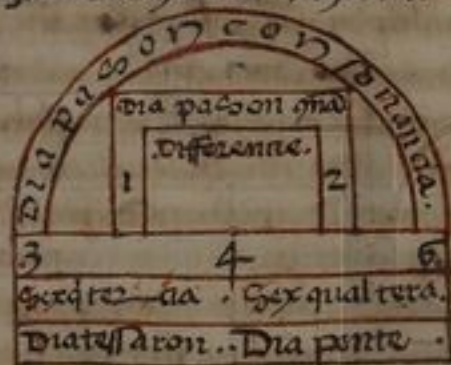 Diapason consonancia.
Dia pason
Differencie.
1 2
3 4 6
Sexqter-cia . Sexqualtera.
Diatessaron .. Dia pente .